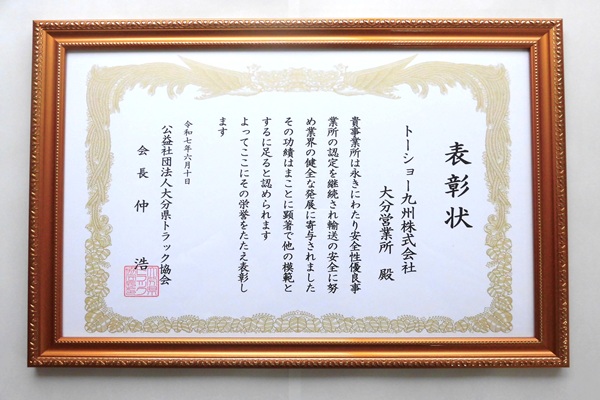 表彰状
トーショー九州株式会社
大分営業所 殿
貴事業所は永きにわたり安全性優良事
業所の認定を継続され輸送の安全に努
め業界の健全な発展に寄与されました
その功績はまことに顕著で他の模範と
するに足ると認められます
よってここにその栄誉をたたえ表彰し
ます
令和七年六月十日
公益社団法人大分県トラック協会
会長 仲 浩